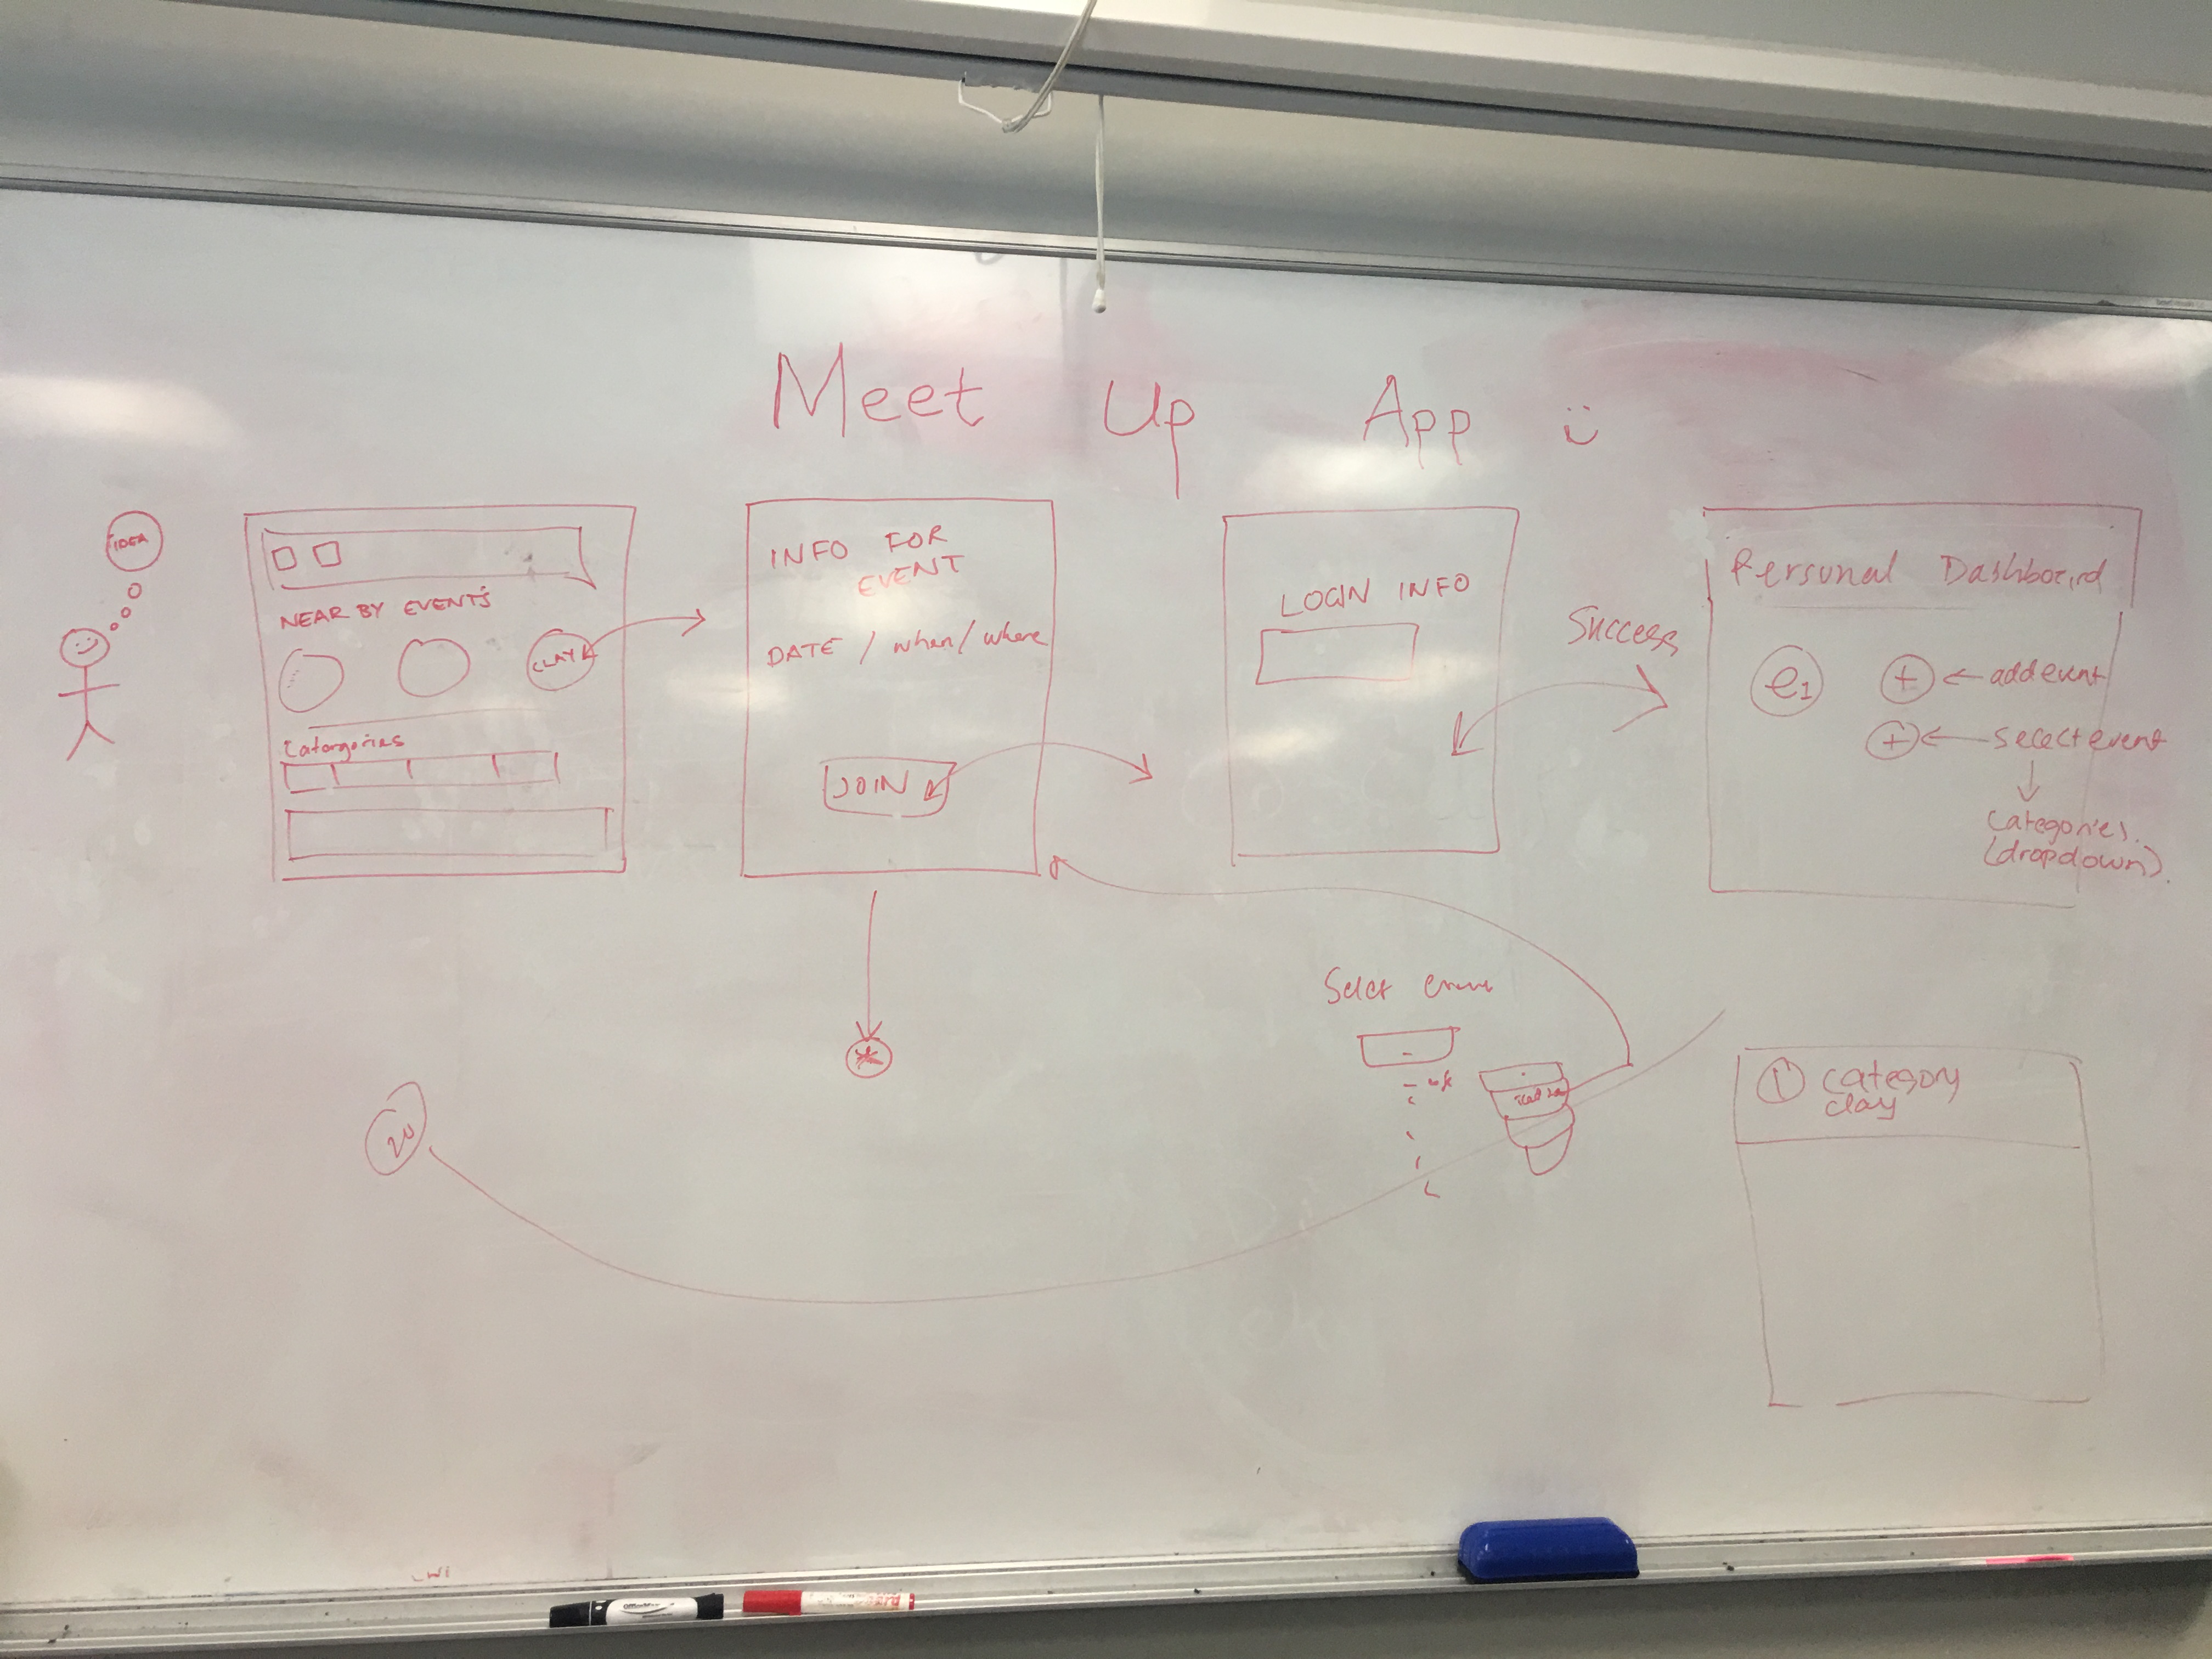 Meet Up App
IDEA
NEAR BY EVENTS
CLAY
Catargories
INFO FOR
EVENT
DATE / when / where
JOIN
LOGIN INFO
Success
Personal Dashboard
e1
+ ← add event
+ ← select event
Categories.
(dropdown).
Select
20
1 category
clay